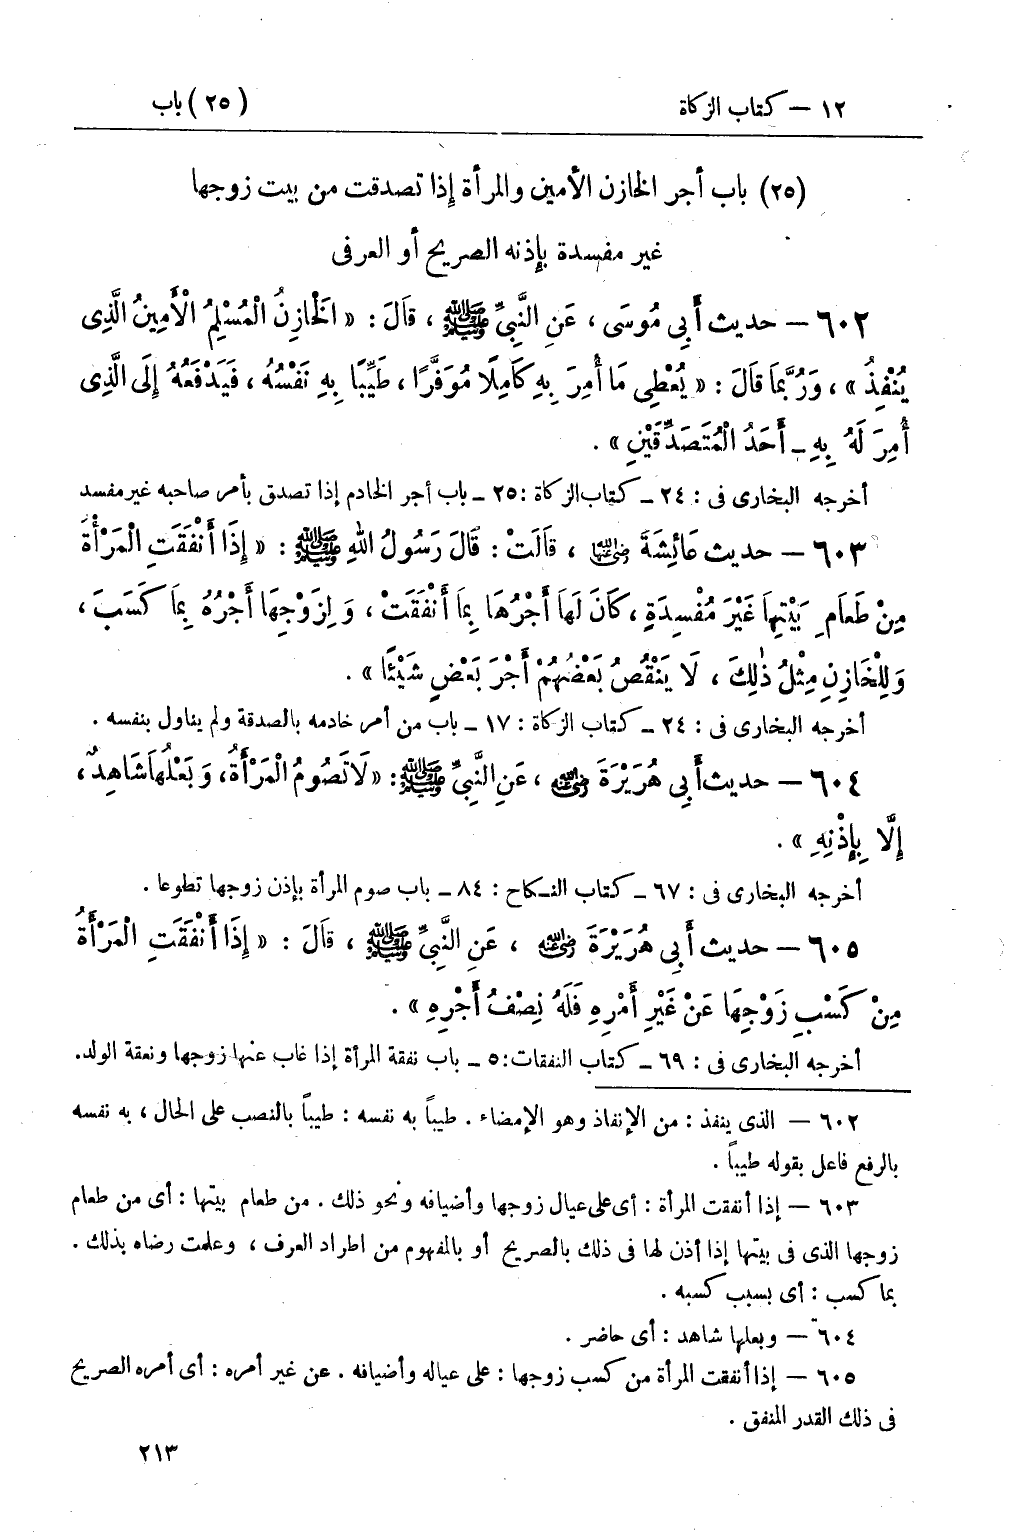 ١٢ – كتاب الزكاة (٢٥) باب
(٢٥) باب أجر الخازن الأمين والمرأة إذا تصدقت من بيت زوجها
غير مفسدة بإذنه الصريح أو العرفى
٦٠٢ – حديث أَبِي مُوسَى ، عَنِ النَّبِيِّ ﷺ ، قَالَ : « الْخَازِنُ الْمُسْلِمُ الْأَمِينُ الَّذِى
يُنْفِذُ » ، وَرُبَّمَا قَالَ : « يُعْطِى مَا أُمِرَ بِهِ كَامِلًا مُوَفَّرًا ، طَيِّبًا بِهِ نَفْسُهُ ، فَيَدْفَعُهُ إِلَى الَّذِى
أُمِرَ لَهُ بِهِ ـ أَحَدُ الْمُتَصَدِّقَيْنِ » .
أخرجه البخارى فى : ٢٤ ـ كتاب الزكاة : ٢٥ ـ باب أجر الخادم إذا تصدق بأمر صاحبه غير مفسد
٦٠٣ – حديث عَائِشَةَ رضي الله عنها ، قَالَتْ : قَالَ رَسُولُ اللهِ ﷺ : « إِذَا أَنْفَقَتِ الْمَرْأَةُ
مِنْ طَعَامِ بَيْتِهَا غَيْرَ مُفْسِدَةٍ ، كَانَ لَهَا أَجْرُهَا بِمَا أَنْفَقَتْ ، وَلِزَوْجِهَا أَجْرُهُ بِمَا كَسَبَ ،
وَلِلْخَازِنِ مِثْلُ ذٰلِكَ ، لَا يَنْقُصُ بَعْضُهُمْ أَجْرَ بَعْضٍ شَيْئًا » .
أخرجه البخارى فى : ٢٤ ـ كتاب الزكاة : ١٧ ـ باب من أمر خادمه بالصدقة ولم يناول بنفسه .
٦٠٤ – حديث أَبِي هُرَيْرَةَ رضي الله عنه ، عَنِ النَّبِيِّ ﷺ : « لَا تَصُومُ الْمَرْأَةُ ، وَبَعْلُهَا شَاهِدٌ ،
إِلَّا بِإِذْنِهِ » .
أخرجه البخارى فى : ٦٧ ـ كتاب النكاح : ٨٤ ـ باب صوم المرأة بإذن زوجها تطوعا .
٦٠٥ – حديث أَبِي هُرَيْرَةَ رضي الله عنه ، عَنِ النَّبِيِّ ﷺ ، قَالَ : « إِذَا أَنْفَقَتِ الْمَرْأَةُ
مِنْ كَسْبِ زَوْجِهَا عَنْ غَيْرِ أَمْرِهِ فَلَهُ نِصْفُ أَجْرِهِ » .
أخرجه البخارى فى : ٦٩ ـ كتاب النفقات : ٥ ـ باب نفقة المرأة إذا غاب عنها زوجها ونفقة الولد .
٦٠٢ – الذى ينفذ : من الإنفاذ وهو الإمضاء . طيباً به نفسه : طيباً بالنصب على الحال ، به نفسه
بالرفع فاعل بقوله طيباً .
٦٠٣ – إذا أنفقت المرأة : أى على عيال زوجها وأضيافه ونحو ذلك . من طعام بيتها : أى من طعام
زوجها الذى فى بيتها إذا أذن لها فى ذلك بالصريح أو بالمفهوم من اطراد العرف ، وعلمت رضاه بذلك .
بما كسب : أى بسبب كسبه .
٦٠٤ – وبعلها شاهد : أى حاضر .
٦٠٥ – إذا أنفقت المرأة من كسب زوجها : على عياله وأضيافه . عن غير أمره : أى أمره الصريح
فى ذلك القدر المنفق .
٢١٣